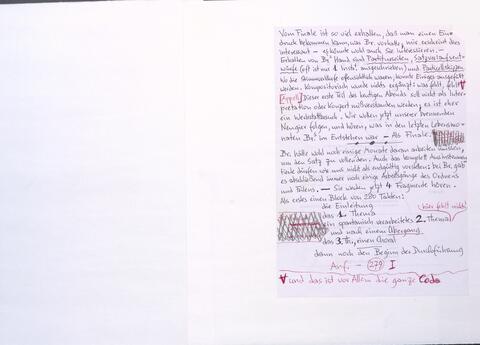 Vom Finale ist so viel erhalten, daß man einen Ein=
druck bekommen kann, was Br. vorhatte, mir erscheint dies
interessant – es könnte wohl auch Sie interessieren. –
Erhalten von Br's Hand sind Partiturseiten, Satzverlaufsent=
würfe (oft ist nur 1 Instr. ausgeschrieben) und Particellskizzen.
Wo die Stimmverläufe offensichtlich waren, konnte Einiges ausgefüllt
werden. Kompositorisch wurde nichts ergänzt: was fehlt, fehlt ∀
[Appell] Dieser erste Teil des heutigen Abends soll nicht als Inter=
pretation oder Konzert mißverstanden werden, es ist eher
ein Werkstattbesuch. Wir wollen jetzt unserer brennenden
Neugier folgen, und hören, was in den letzten Lebensmo=
naten Br's im Entstehen war – Als Finale.
Br. hätte wohl noch einige Monate daran arbeiten müssen,
um den Satz zu vollenden. Auch das komplett Ausinstrumentierte
dürfen wir uns nicht als endgültig vorstellen: bei Br. gab
es abschließend immer noch einige Arbeitsgänge des Ordnens
und Feilens. – Sie werden jetzt 4 Fragmente hören.
Als erstes einen Block von 280 Takten:
die Einleitung
das 1. Thema (hier fehlt nichts)
ein verarbeitetes 2. Thema
und nach einem Übergang
das 3. Th., einen Choral
dann noch den Beginn der Durchführung
Anf. – 279 I
∀ und das ist vor Allem die ganze Coda